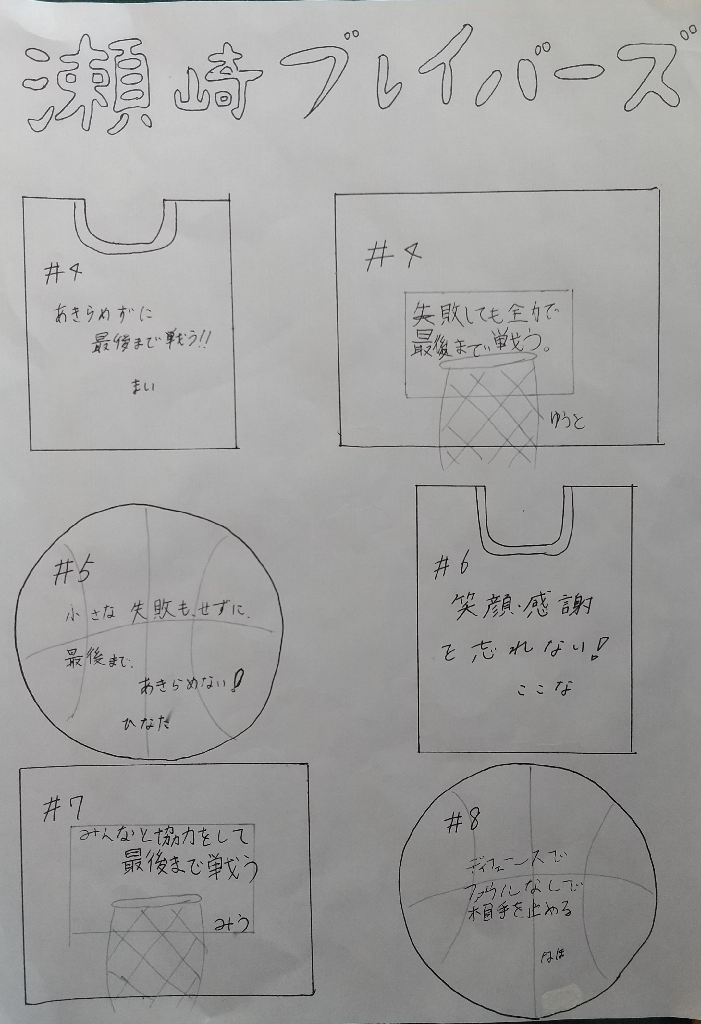 瀬崎ブレイバーズ
#4
あきらめずに
最後まで戦う!!
まい
#4
失敗しても全力で
最後まで戦う。
ゆうと
#5
小さな失敗もせずに、
最後まで、
あきらめない!
ひなた
#6
笑顔・感謝
を忘れない!
ここな
#7
みんなと協力をして
最後まで戦う
みう
#8
ディフェンスで
ファウルなしで
相手を止める
なほ